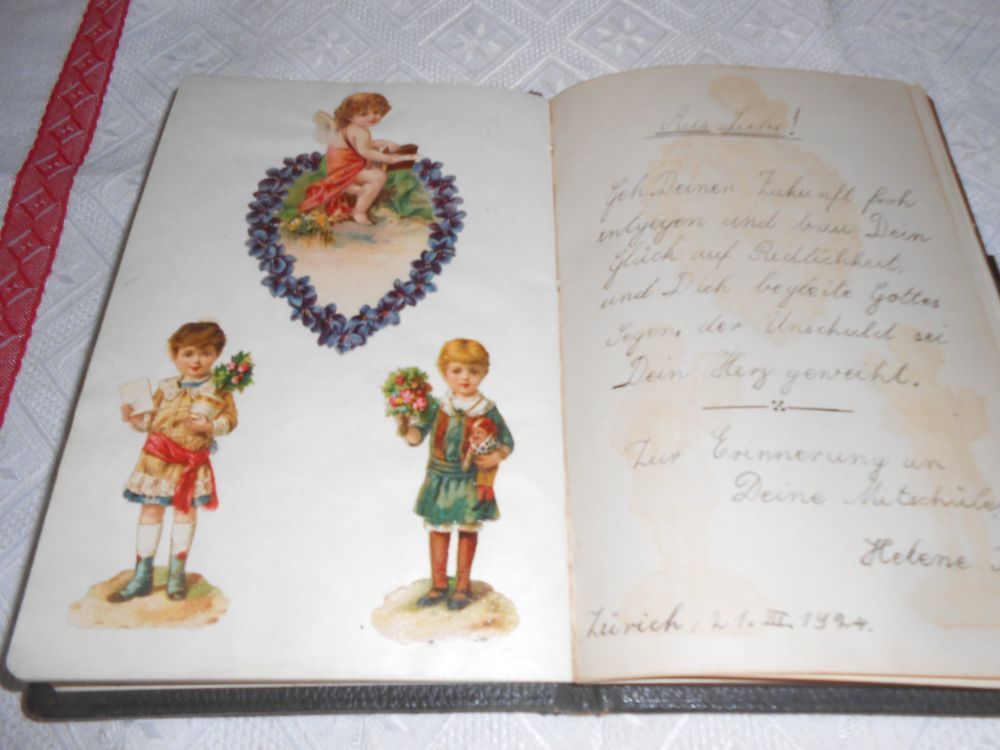 Aus Liebe!
Geh Deinen Zukunft froh
entgegen und bau Dein
Glück auf Redlichkeit,
und Dich begleite Gottes
Segen, der Unschuld sei
Dein Herz geweiht.
Zur Erinnerung an
Deine Mitschüle
Helene
Zürich, 21. III. 1924.